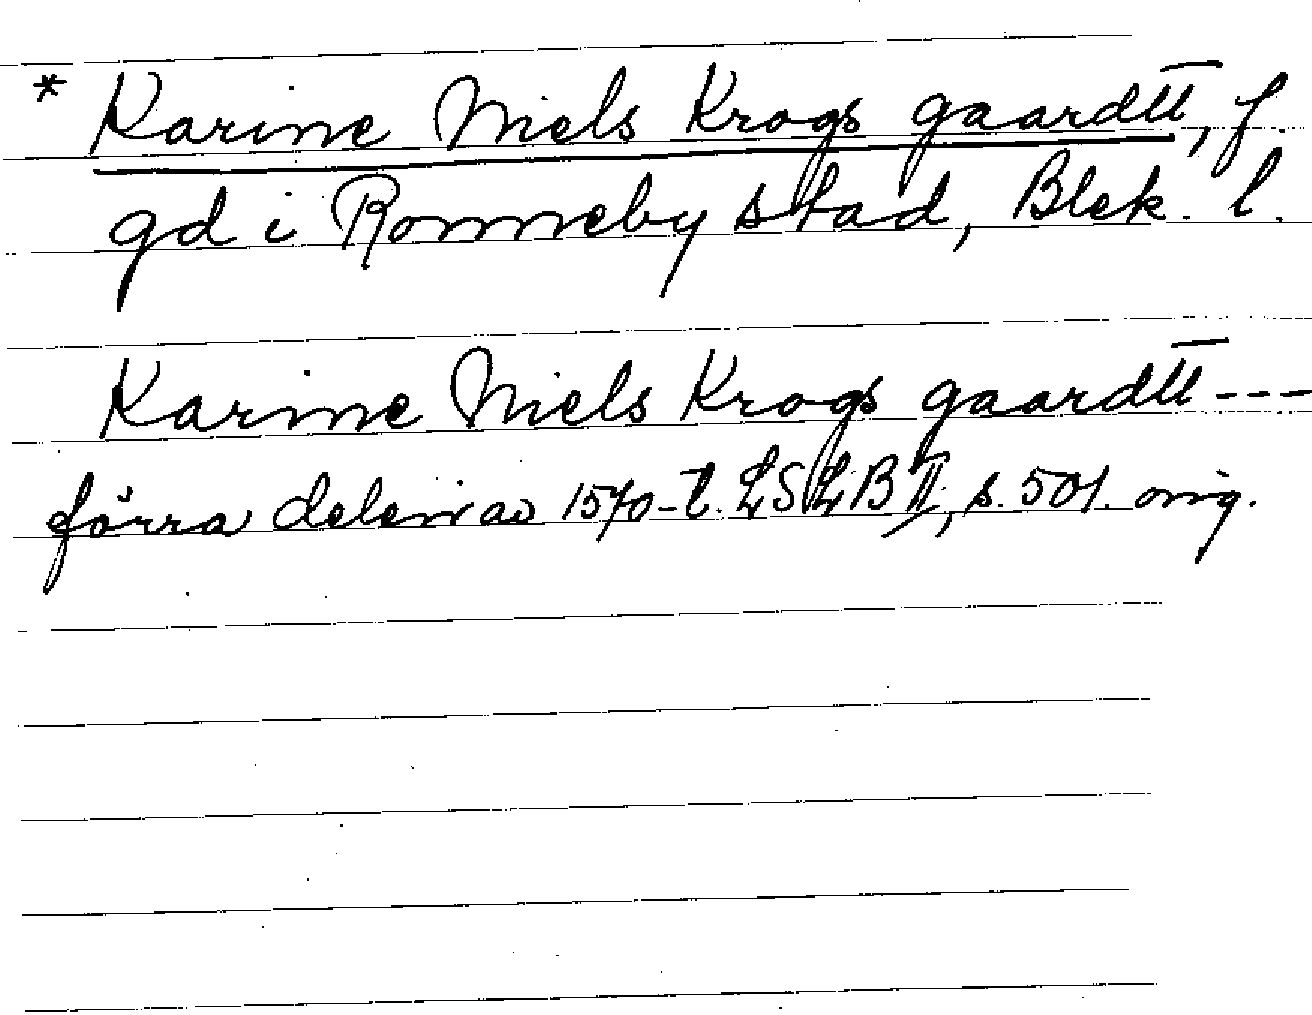 * Karine Niels Krogs gaardtt, f.
gd i Ronneby stad, Blek. l.
Karine Niels Krogs gaardtt ---
förra delen av 1570-t. LSLB II, s. 501. orig.